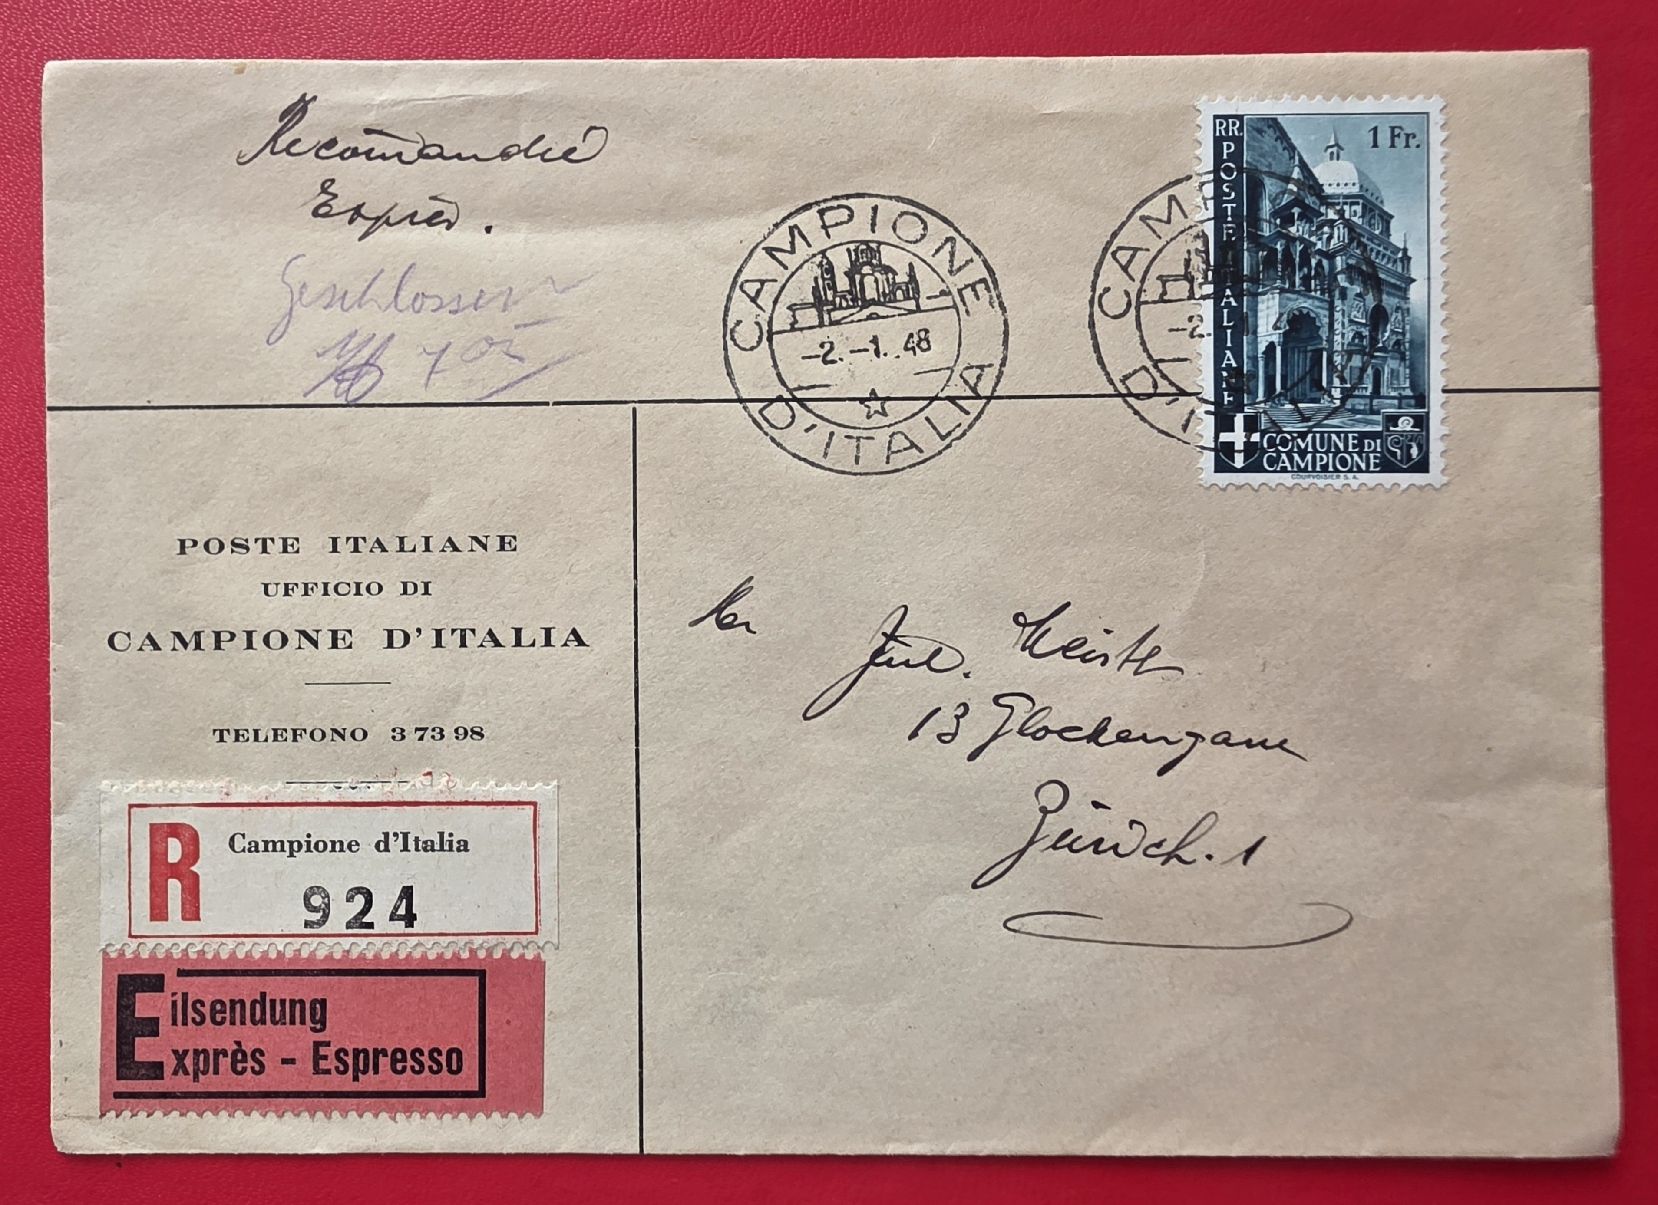 Recomandié
Exprès.
Geschlossen
7 05
CAMPIONE D'ITALIA
-2.-1..48
CAMP
D'IT
-2.
RR. POSTE ITALIANE
1 Fr.
COMUNE DI
CAMPIONE
COURVOISIER S.A.
POSTE ITALIANE
UFFICIO DI
CAMPIONE D'ITALIA
TELEFONO 3 73 98
R Campione d'Italia
924
Eilsendung
Exprès - Espresso
Jul. Meister
13 Glockengasse
Zürich. 1